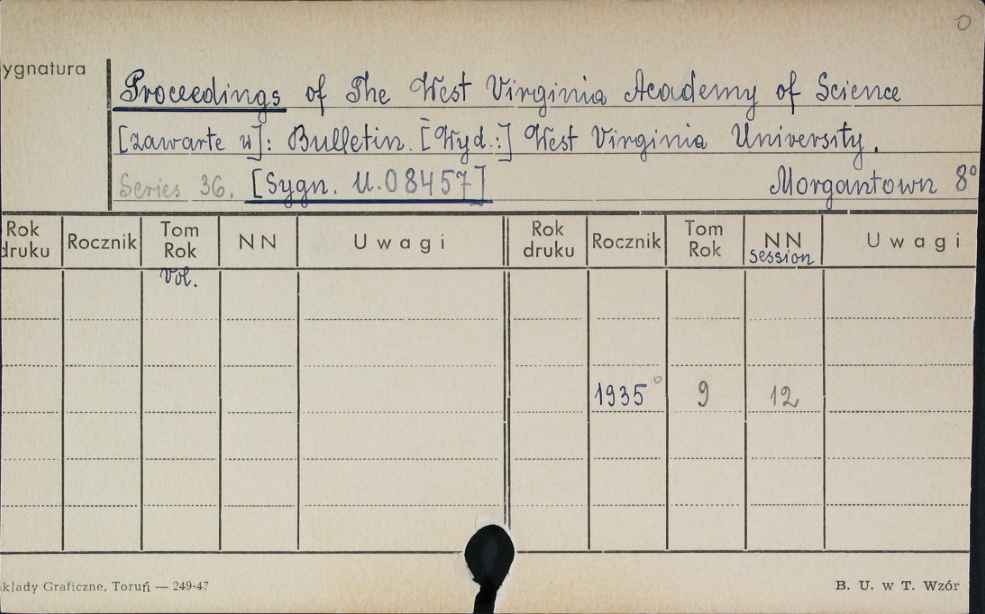 0
ygnatura
Proceedings of The West Virginia Academy of Science
[zawarte w]: Bulletin. [Wyd.:] West Virginia University.
Series 36. [Sygn. U.08457] Morgantown 8°
Rok druku Rocznik Tom Rok NN Uwagi Rok druku Rocznik Tom Rok NN session Uwagi
Vol.
1935° 9 12
kłady Graficzne, Toruń — 249-47 B. U. w T. Wzór